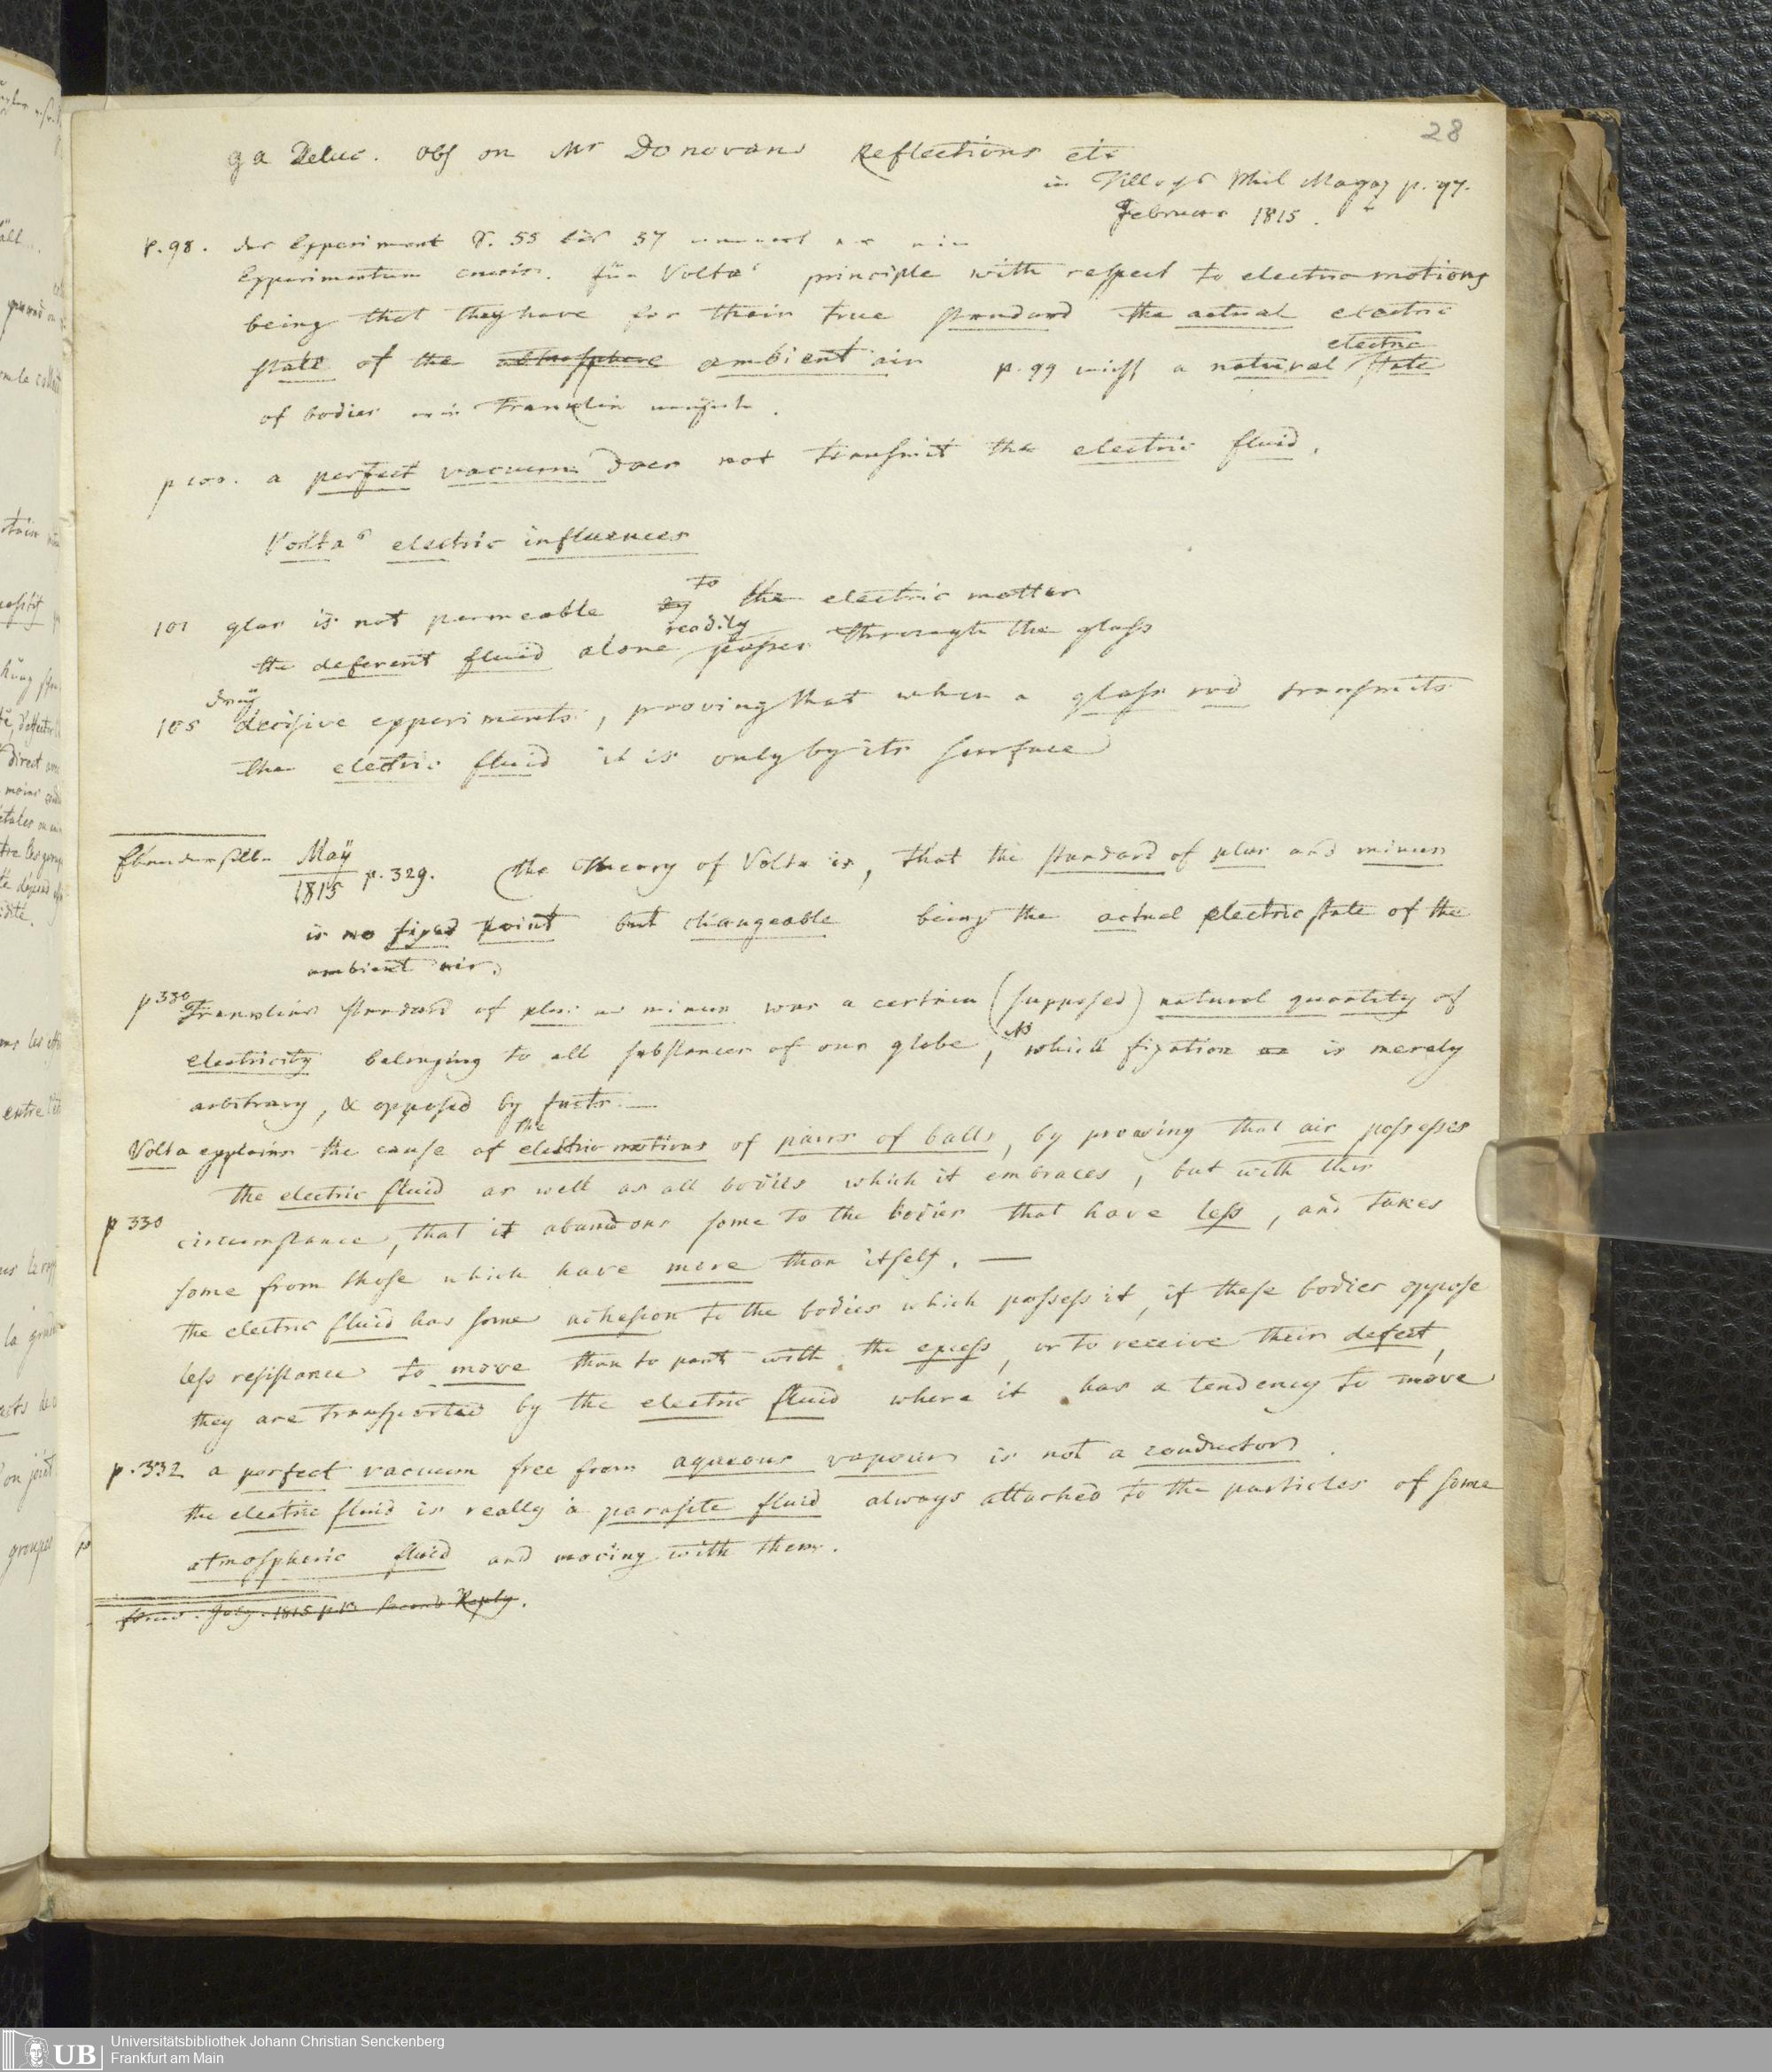 28
ga Deluc. Obs on Mr Donovans Reflections etc
in Tillochs Phil Magaz p. 97.
Februar 1815.
p. 98. das Experiment S. 55 bis 57
Experimentum crucis. für Volta's principle with respect to electric motions
being that they have for their true standard the actual electric
state of the atmosphere ambient air p. 99 nicht a natural electric state
of bodies wie Franklin
p 100. a perfect vacuum does not transmit the electric fluid.
Volta's electric influences
101 glas is not permeable by to the electric matter
the deferent fluid alone readily passes through the glass
105 drey decisive experiments, proving that when a glass rod transmits
the electric fluid it is only by its surface
Ebendaselbst May 1815 p. 329. the Theory of Volta is, that the standard of plus and minus
is no fixed point but changeable being the actual electric state of the
ambient air.
p 330 Franklins standard of plus or minus was a certain (supposed) natural quantity of
electricity belonging to all substances of our globe, NB which fixation is merely
arbitrary, & opposed by facts. —
Volta explains the cause of the electric motions of pairs of balls, by proving that air possesses
the electric fluid as well as all bodies which it embraces, but with this
p 330 circumstance, that it abandons some to the bodies that have less, and takes
some from those which have more than itself. —
the electric fluid has some adhesion to the bodies which possess it, if these bodies oppose
less resistance to move than to part with the excess, or to receive their defect,
they are transported by the electric fluid where it has a tendency to move
p. 332 a perfect vacuum free from aqueous vapours is not a conductor.
the electric fluid is really a parasite fluid always attached to the particles of some
atmospheric fluid and moving with them.
July. 1815 p 13 Second Reply.
UB
Universitätsbibliothek Johann Christian Senckenberg
Frankfurt am Main